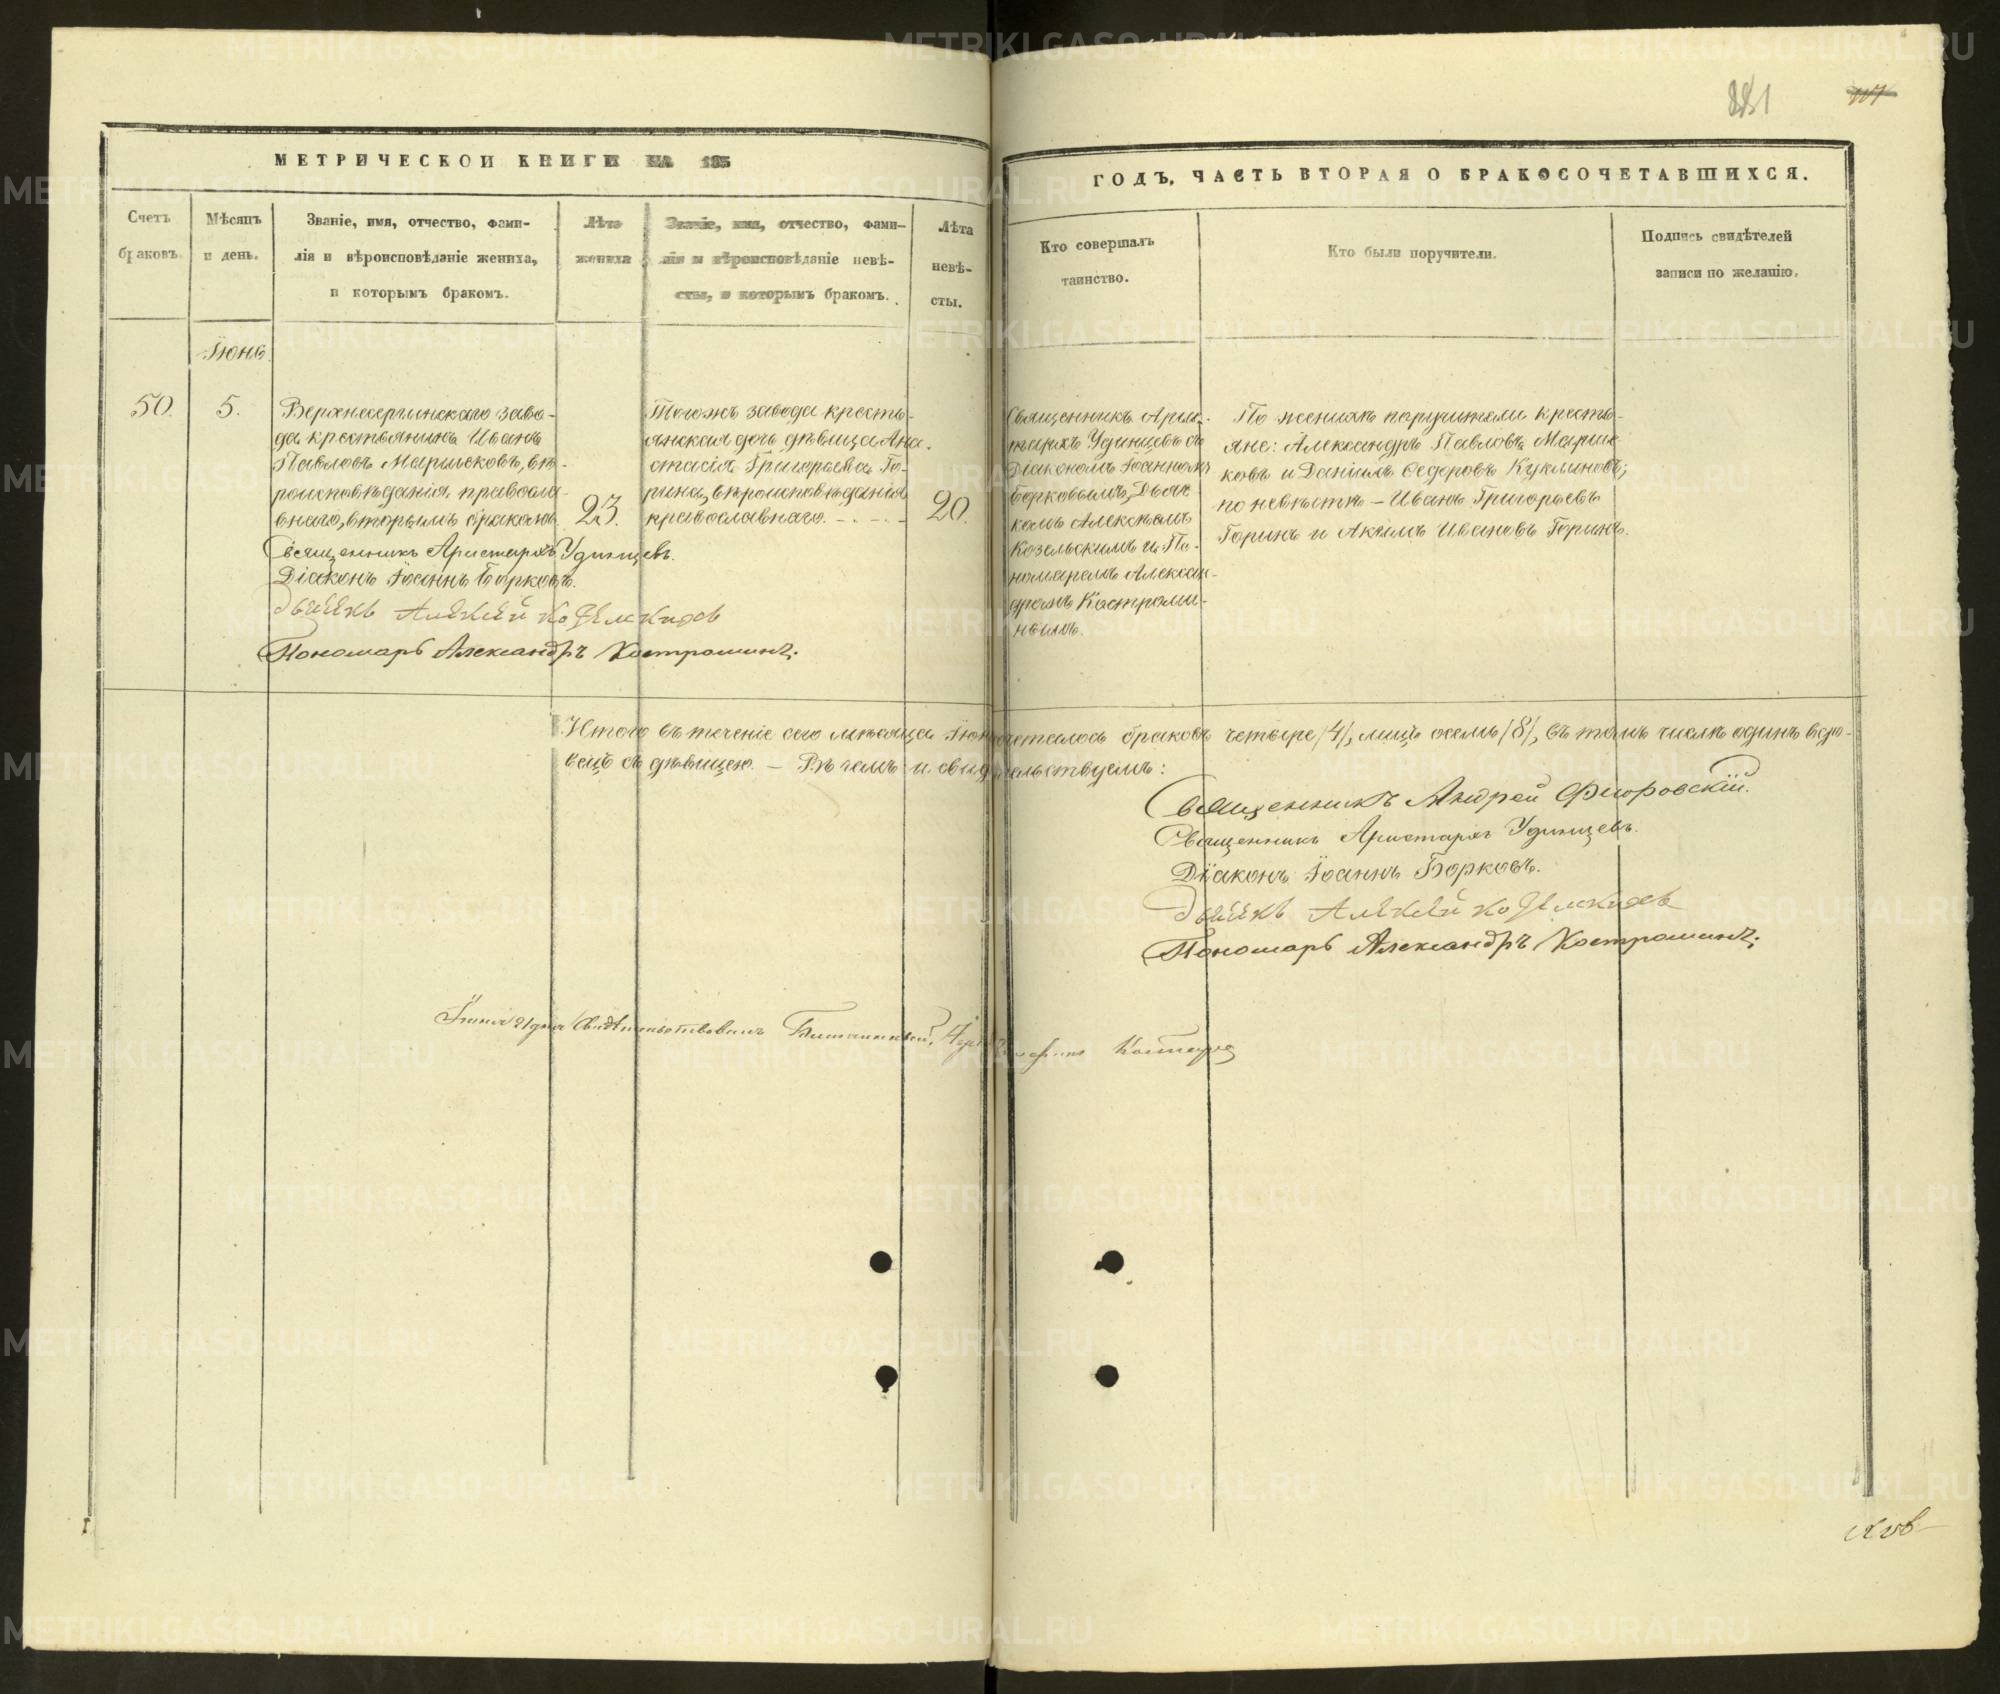 МЕТРИЧЕСКОЙ КНИГИ НА 185
ГОДЪ, ЧАСТЬ ВТОРАЯ О БРАКОСОЧЕТАВШИХСЯ.
881
Счетъ
браковъ.
Мѣсяцъ
и день.
Званіе, имя, отчество, фами-
лія и вѣроисповѣданіе жениха,
и которымъ бракомъ.
Лѣта
жениха
Званіе, имя, отчество, фами-
лія и вѣроисповѣданіе невѣ-
сты, и которымъ бракомъ.
Лѣта
невѣ-
сты.
Кто совершалъ
таинство.
Кто были поручители.
Подпись свидѣтелей
записи по желанію.
Іюнь.
50.
5.
Верхнесергинскаго заво-
да крестьянинъ Иванъ
Павловъ Маршековъ, вѣ-
роисповѣданія правосла-
внаго, вторымъ бракомъ
23.
Тогожъ завода кресть-
янская дочь дѣвица Ана-
стасія Григорьева Го-
рина, вѣроисповѣданія
православнаго.
20.
Священникъ Арис-
тархъ Удинцевъ съ
Діакономъ Іоанномъ
Борковымъ, Дьяч-
комъ Алексѣемъ
Козельскимъ и По-
номаремъ Алексан-
дромъ Костроми-
нымъ.
По женихѣ поручители кресть-
яне: Александръ Павловъ Марше
ковъ и Даніилъ Ѳедоровъ Куклиновъ;
по невѣстѣ – Иванъ Григорьевъ
Горинъ и Акимъ Ивановъ Горинъ.
Священникъ Аристархъ Удинцевъ.
Діаконъ Іоаннъ Борковъ.
Дьячекъ Алексѣй Козельскихъ
Пономарь Александръ Костроминъ.
Итого въ теченіе сего мѣсяца Іюня сочеталось браковъ четыре /4/, лицъ осемь /8/, въ томъ числѣ одинъ вдо-
вецъ съ дѣвицею. – Въ чемъ и свидѣтельствуемъ:
Священникъ Андрей Флоровскій.
Священникъ Аристархъ Удинцевъ.
Діаконъ Іоаннъ Борковъ.
Дьячекъ Алексѣй Козельскихъ
Пономарь Александръ Костроминъ.
Іюня 21 дня Свидѣтельствовалъ